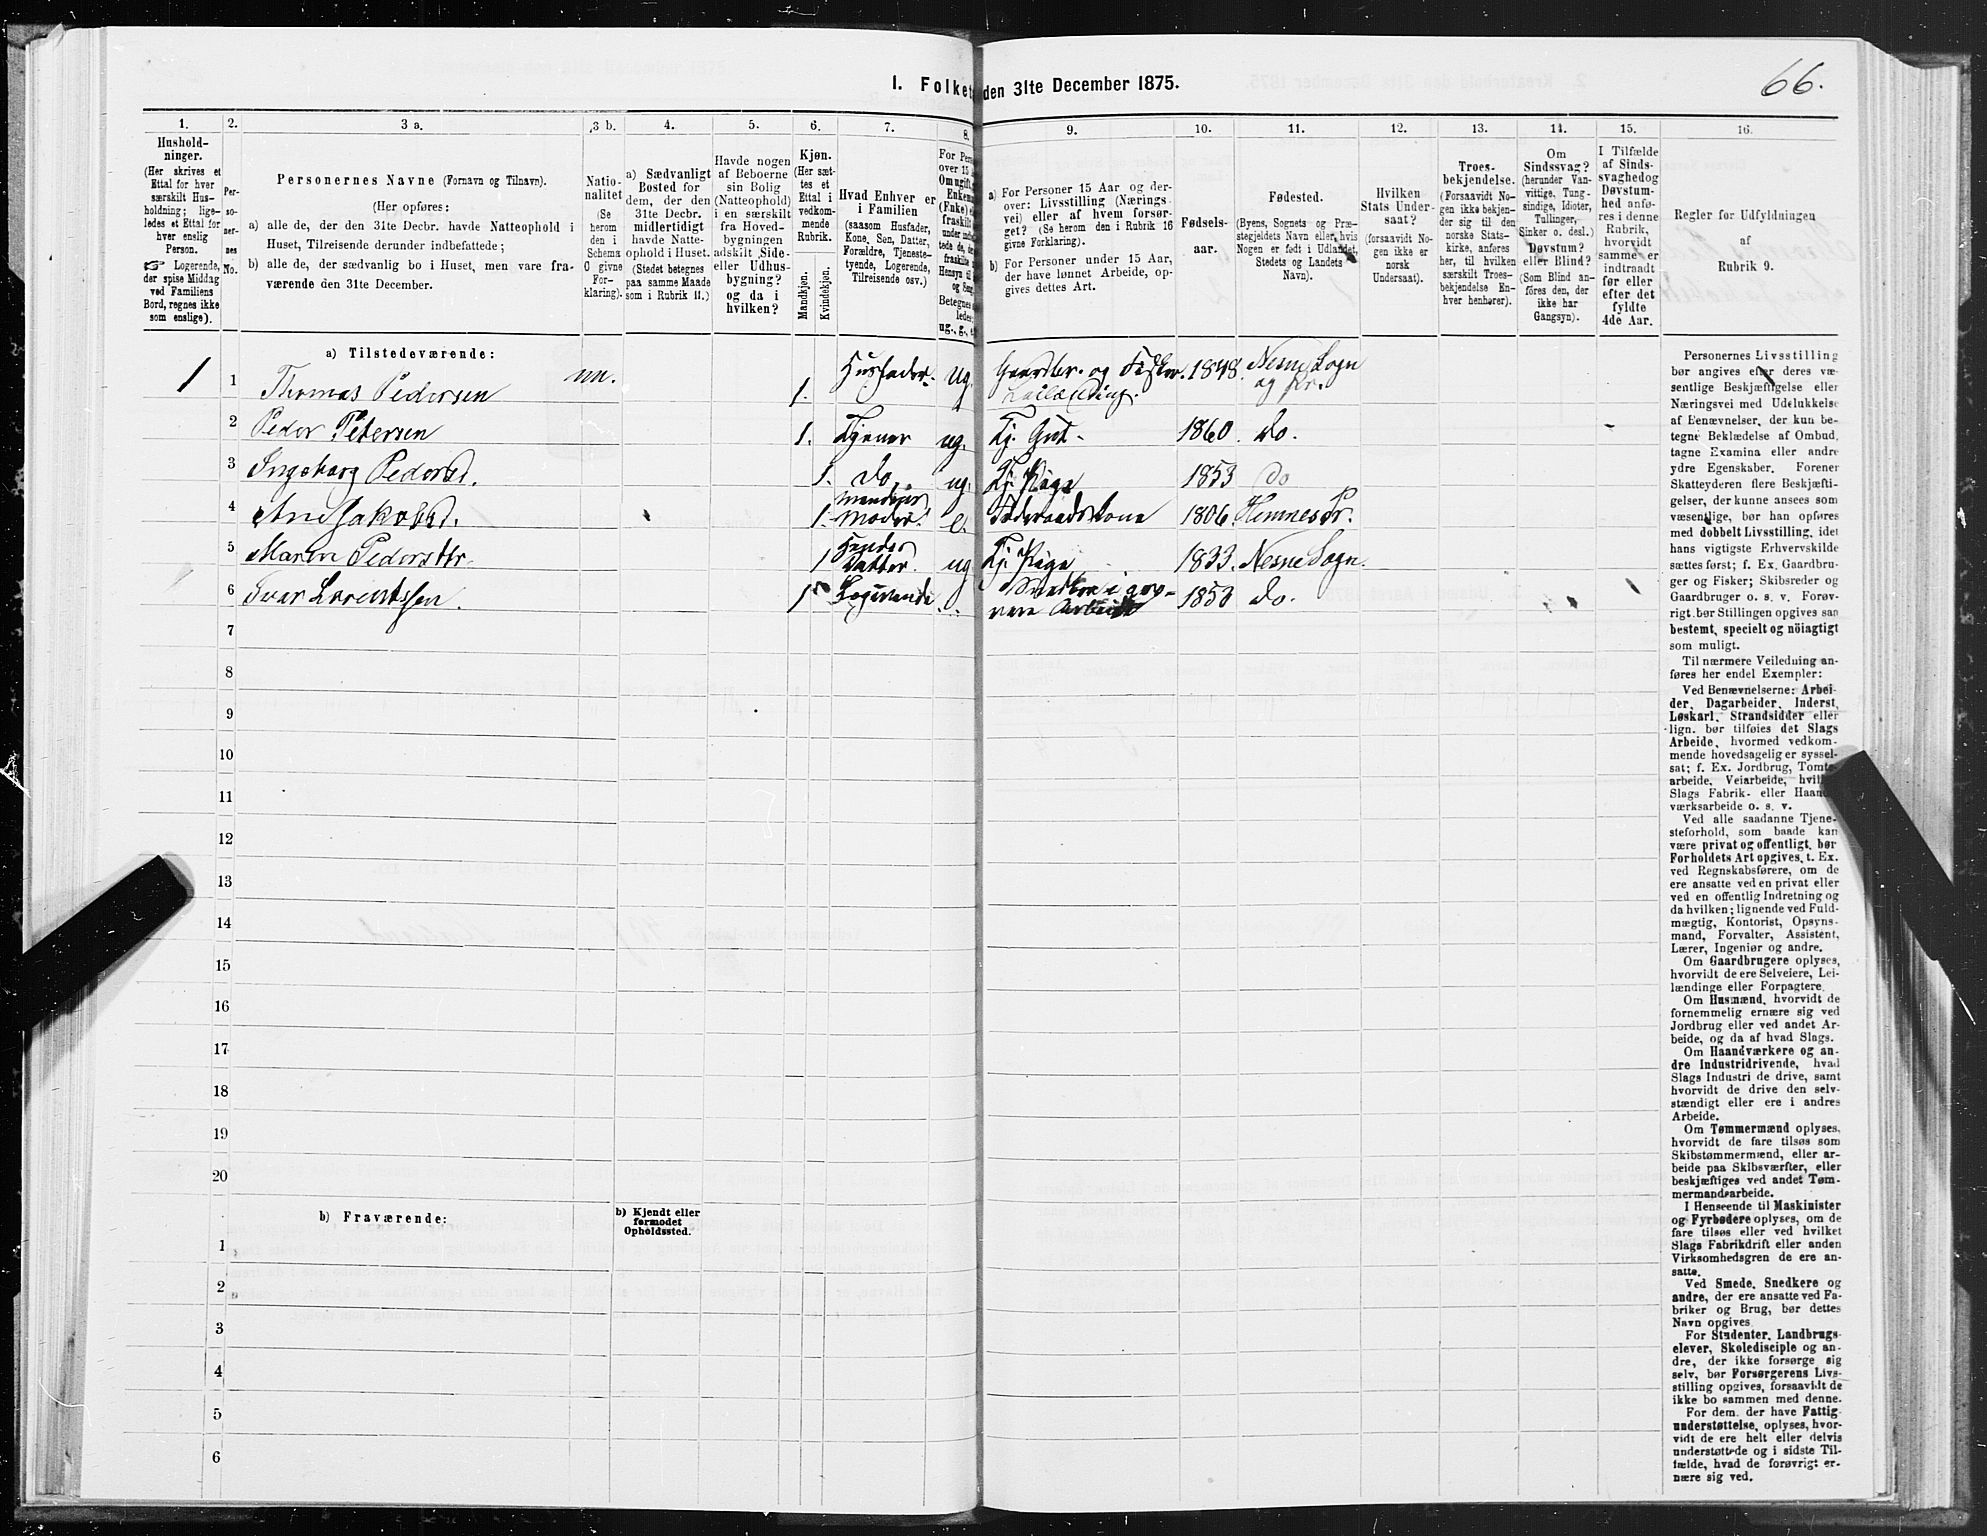 66.
I. Folket den 31te December 1875.
1. 2. 3 a. 3 b. 4. 5. 6. 7. 8. 9. 10. 11. 12. 13. 14. 15. 16.
Hushold-
ninger.
(Her skrives et
Ettal for hver
særskilt Hus-
holdning; lige-
ledes et Ettal for
hver enslig
Person.
☞ Logerende,
der spise Middag
ved Familiens
Bord, regnes ikke
som enslige).
Per-
so-
ner-
nes
No.
Personernes Navne (Fornavn og Tilnavn).
(Her opføres:
a) alle de, der den 31te Decbr. havde Natteophold i
Huset, Tilreisende derunder indbefattede;
b) alle de, der sædvanlig bo i Huset, men vare fra-
værende den 31te December.
Natio-
nalitet
(Se
herom
den i
Schema
O givne
For-
klaring).
a) Sædvanligt
Bosted for
dem, der den
31te Decbr.
midlertidigt
havde Natte-
ophold i Huset.
(Stedet betegnes
paa samme Maade
som i Rubrik 11.)
Havde nogen
af Beboerne
sin Bolig
(Natteophold)
i en særskilt
fra Hoved-
bygningen
adskilt Side-
eller Udhus-
bygning?
og da i
hvilken?
Kjøn.
(Her sæt-
tes et
Ettal i
vedkom-
mende
Rubrik.
Mandkjøn.
Kvindekjøn.
Hvad Enhver er
i Familien
(saasom Husfader,
Kone, Søn, Datter,
Forældre, Tjeneste-
tyende, Logerende,
Tilreisende osv.)
For Pers
over 15
Om ugift,
Enkem
(Enke) e
fraskilt
under
tede de,
fraskilte
Hensyn til
og Seng
Betegnes
ledes:
ug., g., e
a) For Personer 15 Aar og der-
over: Livsstilling (Nærings-
vei) eller af hvem forsør-
get? (Se herom den i Rubrik 16
givne Forklaring).
b) For Personer under 15 Aar,
der have lønnet Arbeide, op-
gives dettes Art.
Fødsels-
aar.
Fødested.
(Byens, Sognets og Præ-
stegjeldets Navn eller, hvis
Nogen er født i Udlandet,
Stedets og Landets
Navn).
Hvilken
Stats Under-
saat?
(forsaavidt No-
gen ikke er
norsk
Undersaat).
Troes-
bekjendelse.
(Forsaavidt No-
gen ikke bekjen-
der sig til den
norske Stats-
kirke, anføres
her, til hvilken
særskilt Troes-
bekjendelse En-
hver henhører).
Om
Sindssvag?
(herunder Van-
vittige, Tung-
sindige, Idioter,
Tullinger,
Sinker o. desl.)
Døvstum?
eller Blind?
(Som Blind an-
føres den, der
ikke har
Gangsyn).
I Tilfælde
af Sinds-
svaghed og
Døvstum-
hed anfø-
res i denne
Rubrik,
hvorvidt
samme er
indtraadt
før eller
efter det
fyldte
4de Aar.
Regler for Udfyldningen
af
Rubrik 9.
a) Tilstedeværende:
1 1 Thomas Pedersen nn. 1. Husfader. ug. Gaardbr. og Fisker. Leilænding. 1848. Nesne Sogn og Pr.
2 Peder Petersen 1. Tjener ug. Tj. Gut. 1860. do.
3 Ingeborg Pedersd. 1. do. ug. Tj. Pige 1853 do
4 Ane Jakobsd. 1. Mandens Moder. e. Føderaadskone 1806. Hemnes Pr.
5 Maren Pedersdtr 1 Hendes Datter. ug Tj. Pige 1833. Nesne Sogn.
6 Ivar Lorentssen. 1 Logerende. Snedker i grovere Arbeide 1853 do.
7
8
9
10
11
12
13
14
15
16
17
18
19
20
b) Fraværende:
b) Kjendt eller
formodet
Opholdssted.
1
2
3
4
5
6
Personernes Livsstilling
bør angives efter deres væ-
sentlige Beskjæftigelse eller
Næringsvei med Udelukkelse
af Benævnelser, der kun be-
tegne Beklædelse af Ombud,
tagne Examina eller andre
ydre Egenskaber. Forener
Skatteyderen flere Beskjæfti-
gelser, der kunne ansees som
væsentlige, bør han opføres
med dobbelt Livsstilling, idet
hans vigtigste Erhvervskilde
sættes først; f. Ex. Gaardbru-
ger og Fisker; Skibsreder og
Gaardbruger o. s. v. Forøv-
rigt bør Stillingen opgives saa
bestemt, specielt og nöiagtigt
som muligt.
Til nærmere Veiledning an-
føres her endel Exempler:
Ved Benævnelserne: Arbei-
der, Dagarbeider, Inderst,
Løskarl, Strandsidder eller
lign. bør tilføies det Slags
Arbeide, hvormed vedkom-
mende hovedsagelig er syssel-
sat; f. Ex. Jordbrug, Tomte-
arbeide, Veiarbeide, hvilket
Slags Fabrik- eller Haand-
værksarbeide o. s. v.
Ved alle saadanne Tjene-
steforhold, som baade kan
være privat og offentligt, bør
Forholdets Art opgives, t. Ex.
ved Regnskabsførere, om de
ere ansatte ved en privat eller
ved en offentlig Indretning og
da hvilken; lignende ved Fuld-
mægtig, Kontorist, Opsyns-
mand, Forvalter, Assistent,
Lærer, Ingeniør og andre.
Om Gaardbrugere oplyses,
hvorvidt de ere Selveiere, Lei-
lændinge eller Forpagtere.
Om Husmænd, hvorvidt de
fornemmelig ernære sig ved
Jordbrug eller ved andet Ar-
beide, og da af hvad Slags.
Om Haandværkere og an-
dre Industridrivende, hvad
Slags Industri de drive, samt
hvorvidt de drive den selv-
stændigt eller ere i andres
Arbeide.
Om Tømmermænd oplyses,
hvorvidt de fare tilsøs som
Skibstømmermænd, eller ar-
beide paa Skibsværfter, eller
beskjæftiges ved andet Tøm-
mermandsarbeide.
I Henseende til Maskinister
og Fyrbødere oplyses, om de
fare tilsøs eller ved hvilket
Slags Fabrikdrift eller anden
Virksomhedsgren de ere an-
satte.
Ved Smede, Snedkere og
andre, der ere ansatte ved Fa-
briker og Brug, bør dettes
Navn opgives.
For Studenter, Landbrugs-
elever, Skoledisciple og an-
dre, der ikke forsørge sig
selv, bør Forsørgerens Livs-
stilling opgives, forsaavidt de
ikke bo sammen med denne.
For dem, der have Fattig-
understøttelse, oplyses, hvor-
vidt de ere helt eller delvis
understøttede og i sidste Til-
fælde, hvad de forøvrigt er-
nære sig ved.